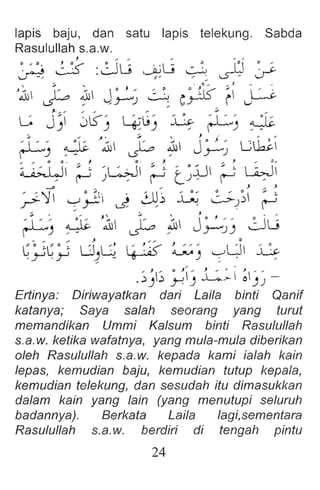 lapis baju, dan satu lapis telekung. Sabda
Rasulullah s.a.w.
عَنْ لَيْلَى بِنْتِ قَانِفٍ قَالَتْ: كُنْتُ فِيْمَنْ
غَسَلَ أُمَّ كُلْثُوْمٍ بِنْتَ رَسُوْلِ اللهِ صَلَّى اللهُ
عَلَيْهِ وَسَلَّمَ عِنْدَ وَفَاتِهَا وَكَانَ أَوَّلُ مَا
أَعْطَانَا رَسُوْلُ اللهِ صَلَّى اللهُ عَلَيْهِ وَسَلَّمَ
الْحِقَا ثُمَّ الدِّرْعَ ثُمَّ الْخِمَارَ ثُمَّ الْمِلْحَفَةَ
ثُمَّ أُدْرِجَتْ بَعْدَ ذَلِكَ فِي الثَّوْبِ الْآخَرِ
قَالَتْ وَرَسُوْلُ اللهِ صَلَّى اللهُ عَلَيْهِ وَسَلَّمَ
عِنْدَ الْبَابِ وَمَعَهُ كَفَنُهَا يُنَاوِلُنَا ثَوْبًا ثَوْبًا
– رَوَاهُ أَحْمَدُ وَأَبُوْ دَاوُدَ.
Ertinya: Diriwayatkan dari Laila binti Qanif
katanya; Saya salah seorang yang turut
memandikan Ummi Kalsum binti Rasulullah
s.a.w. ketika wafatnya, yang mula-mula diberikan
oleh Rasulullah s.a.w. kepada kami ialah kain
lepas, kemudian baju, kemudian tutup kepala,
kemudian telekung, dan sesudah itu dimasukkan
dalam kain yang lain (yang menutupi seluruh
badannya). Berkata Laila lagi,sementara
Rasulullah s.a.w. berdiri di tengah pintu
24